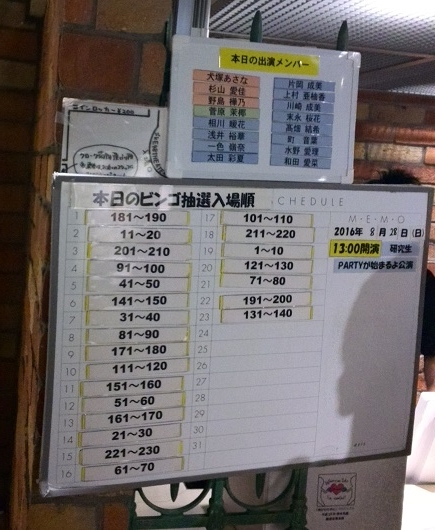 本日の出演メンバー
犬塚あさな
杉山 愛佳
野島 樺乃
菅原 茉椰
相川 暖花
浅井 裕華
一色 嶺奈
太田 彩夏
片岡 成美
上村 亜柚香
川崎 成美
末永 桜花
髙畑 結希
町 音葉
水野 愛理
和田 愛菜
コインロッカー ¥300
本日のビンゴ抽選入場順 SCHEDULE
1 181~190
2 11~20
3 201~210
4 91~100
5 41~50
6 141~150
7 31~40
8 81~90
9 171~180
10 111~120
11 151~160
12 51~60
13 161~170
14 21~30
15 221~230
16 61~70
17 101~110
18 211~220
19 1~10
20 121~130
21 71~80
22 191~200
23 131~140
24
25
26
27
28
29
30
31
M・E・M・O
2016年 8月28日(日)
13:00開演 研究生
PARTYが始まるよ公演